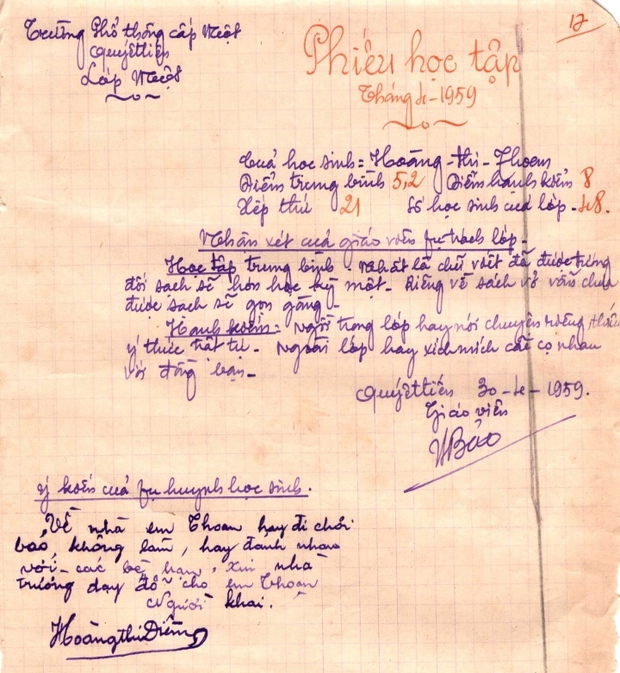 Trường Phổ thông cấp Một
Quyết tiến
Lớp Một
17
Phiếu học tập
Tháng 4-1959
Của học sinh: Hoàng-thị-Thoan
Điểm trung bình 5,2 Điểm hạnh kiểm 8
Xếp thứ 21 Số học sinh của lớp - 48.
Nhận xét của giáo viên phụ trách lớp -
Học tập trung bình - nhất là chữ viết đã được tương
đối sạch sẽ hơn học kỳ một - Riêng về sách vở vẫn chưa
được sạch sẽ gọn gàng -
Hạnh kiểm: - Ngồi trong lớp hay nói chuyện riêng thiếu
ý thức trật tự - Ngoài lớp hay xích mích cãi cọ nhau
với đồng bạn -
Quyết tiến 30-4-1959.
Giáo viên
VBảo
Ý kiến của phụ huynh học sinh.
Về nhà em Thoan hay đi chơi
bảo không làm, hay đánh nhau
với các bè bạn, xin nhà
trường dạy dỗ cho em Thoan
Người khai.
Hoàng thị Diễm